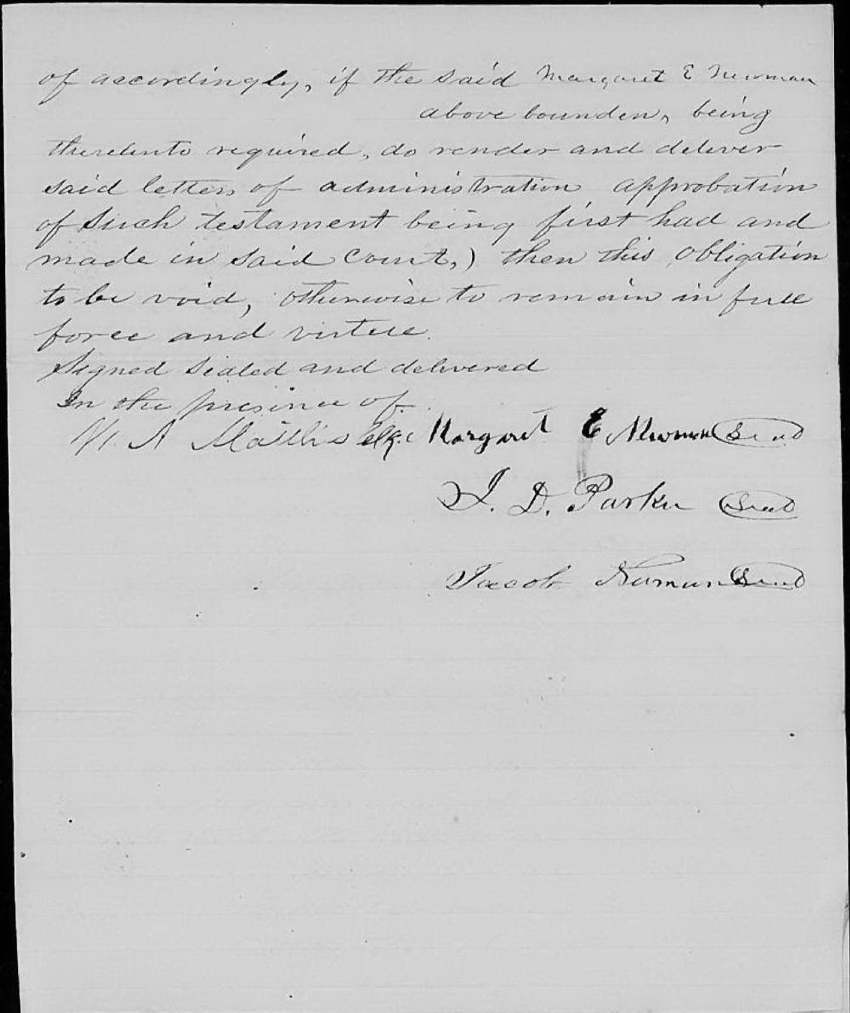 of accordingly, if the said Margaret E Newman
above bounden, being
thereunto required, do render and deliver
said letters of administration approbation
of Such testament being first had and
made in said Court,) then this obligation
to be void, otherwise to remain in full
force and virtue.
Signed sealed and delivered
In the presence of
A Mathis clk. Margaret E Newman Seal
D. Parker Seal
Jacob Numan Seal